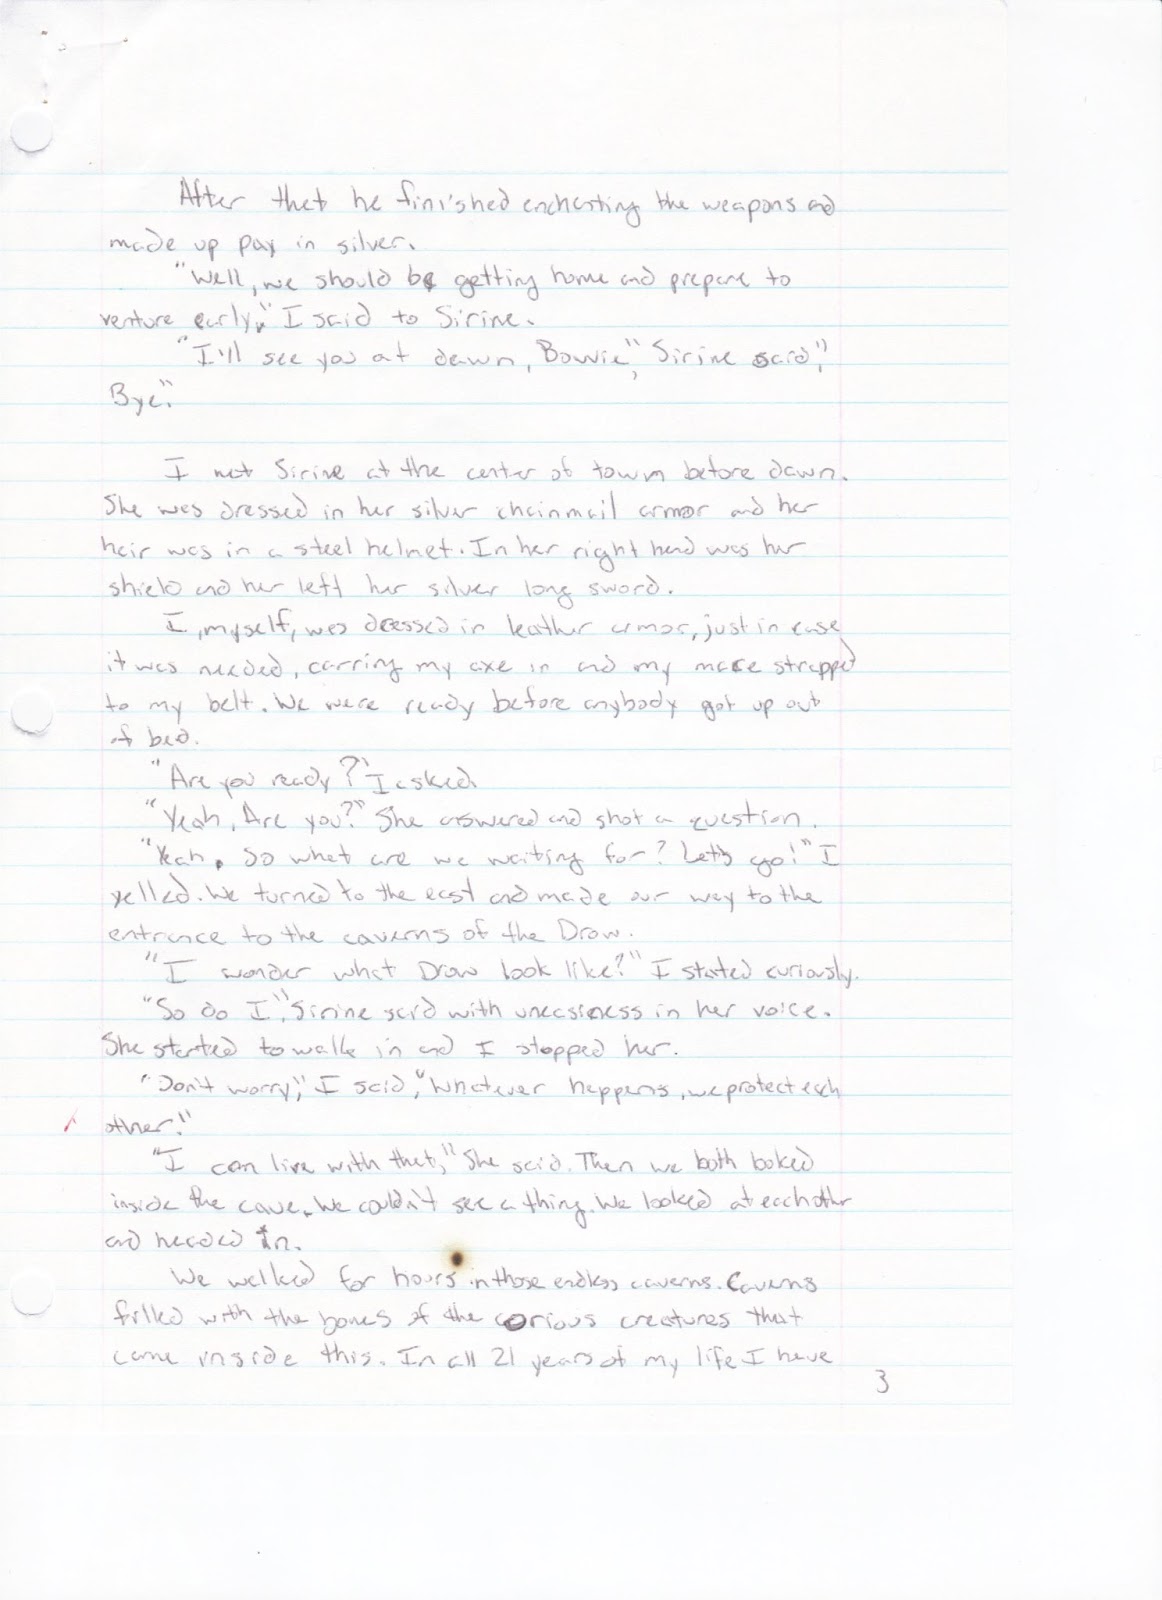 After that he finished enchanting the weapons and
made up pay in silver.
"Well, we should be getting home and prepare to
venture early," I said to Sirine.
"I'll see you at dawn, Bowie", Sirine said, "
Bye."
I met Sirine at the center of town before dawn.
She was dressed in her silver chainmail armor and her
hair was in a steel helmet. In her right hand was her
shield and her left her silver long sword.
I, myself, was dressed in leather armor, just in case
it was needed, carring my axe in and my mace strapped
to my belt. We were ready before anybody got up out
of bed.
"Are you ready?" I asked.
"Yeah, Are you?" She answered and shot a question.
"Yeah. So what are we waiting for? Let's go!" I
yelled. We turned to the east and made our way to the
entrance to the caverns of the Drow.
"I wonder what Drow look like?" I stated curiously.
"So do I", Sirine said with uneasiness in her voice.
She started to walk in and I stopped her.
"Don't worry," I said, "Whatever happens, we protect each
other."
"I can live with that," She said. Then we both looked
inside the cave. We couldn't see a thing. We looked at eachother
and headed in.
We walked for hours in those endless caverns. Caverns
filled with the bones of the corious creatures that
came inside this. In all 21 years of my life I have
3